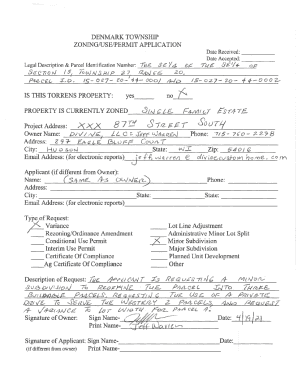 DENMARK TOWNSHIP
ZONING/USE/PERMIT APPLICATION
Date Received:
Date Accepted:
Legal Description & Parcel Identification Number: THE SE 1/4 OF THE SE 1/4 OF
SECTION 15, TOWNSHIP 27, RANGE 20.
PARCEL I.D. 15-027-20-44-0001 AND 15-027-20-44-0002
IS THIS TORRENS PROPERTY: yes no X
PROPERTY IS CURRENTLY ZONED SINGLE FAMILY ESTATE
Project Address: XXX 87TH STREET SOUTH
Owner Name: DIVINE, LLC: JEFF WARREN Phone: 715-760-2298
Address: 297 EAGLE BLUFF COURT
City: HUDSON State: WI Zip: 54016
Email Address: (for electronic reports) jeff.warren@divinecustomhome.com
Applicant (if different from Owner):
Name: (SAME AS OWNER) Phone:
Address:
City: State: State:
Email Address: (for electronic reports)
Type of Request:
X Variance Lot Line Adjustment
Rezoning/Ordinance Amendment Administrative Minor Lot Split
Conditional Use Permit X Minor Subdivision
Interim Use Permit Major Subdivision
Certificate of Compliance Planned Unit Development
Ag Certificate of Compliance Other
Description of Request: THE APPLICANT IS REQUESTING A MINOR
SUBDIVISION TO REDEFINE THE PARCEL INTO THREE
BUILDABLE PARCELS, REQUESTING THE USE OF A PRIVATE
DRIVE TO SERVE THE WESTERLY 2 PARCELS AND REQUEST
A VARIANCE TO LOT WIDTH FOR PARCEL A.
Signature of Owner: Sign Name- Date:
Print Name- Jeff Warren
Signature of Applicant: Sign Name- Date:
(if different from owner) Print Name-